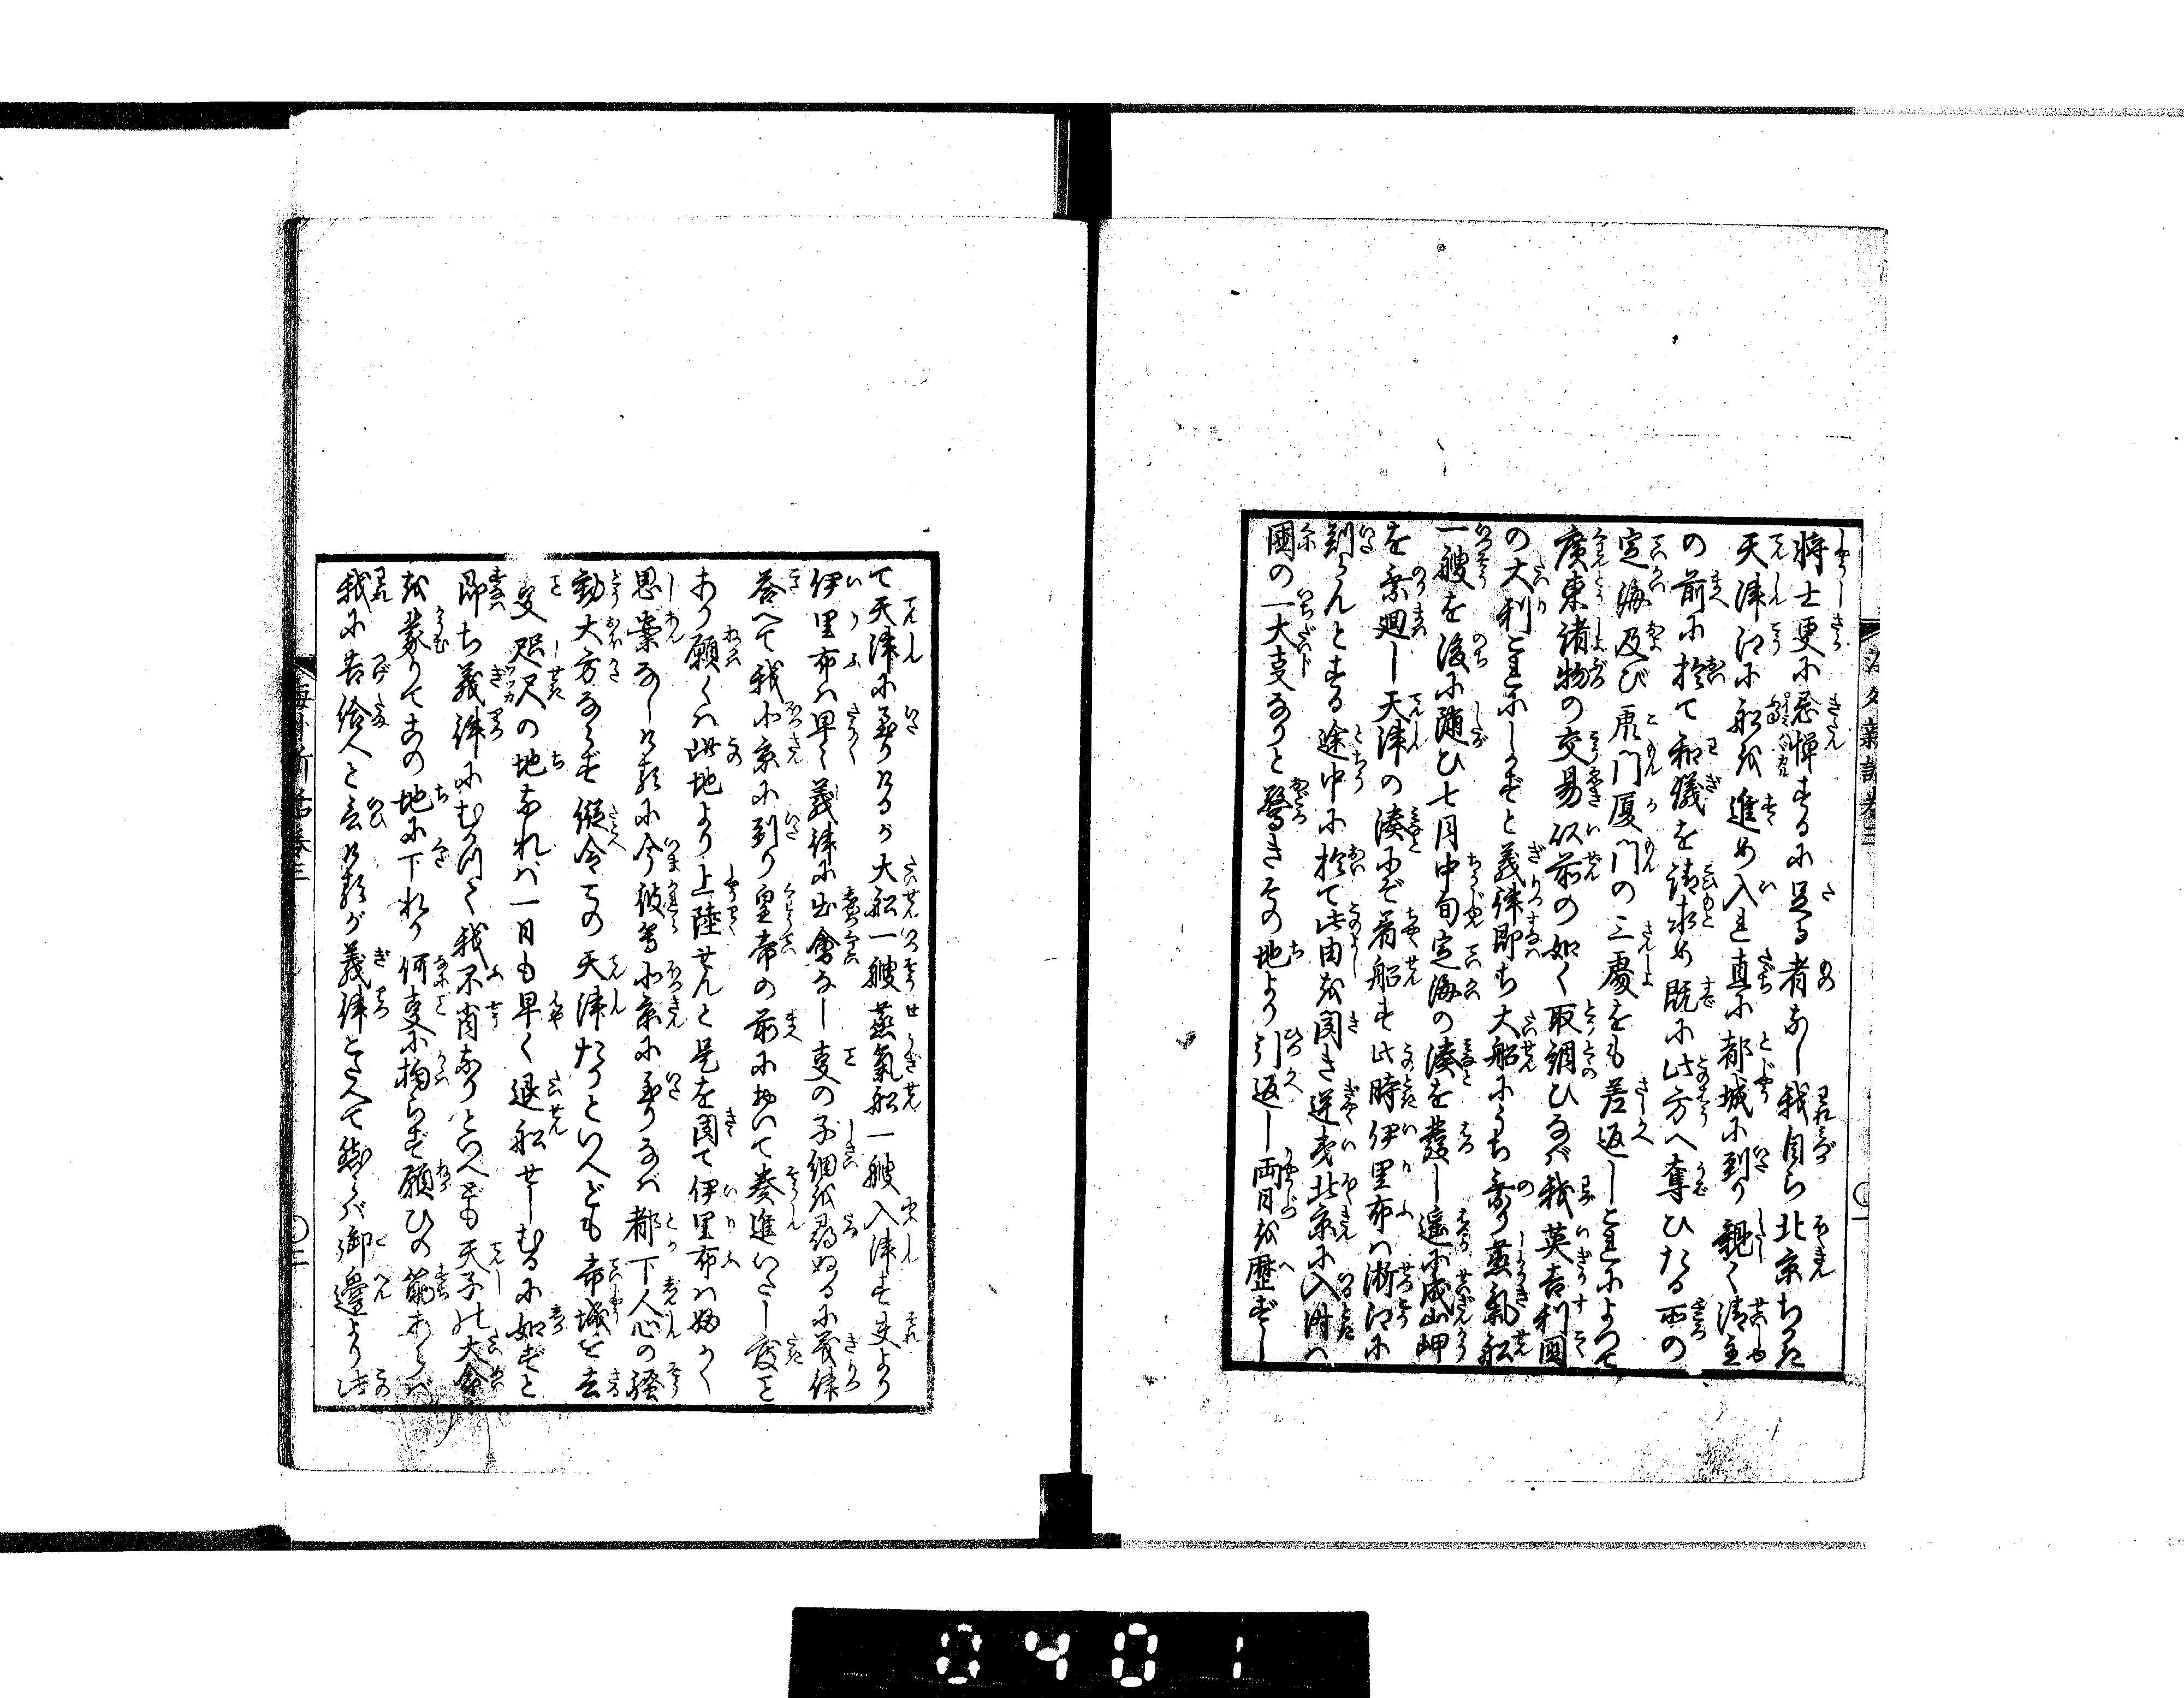 将士更に忌憚するに足る者なし我自ら北京ちかき
天津江に船を進め入れ直に都城に到り親く清主
の前に於て和議を請求め既に此方へ奪ひたる所の
定海及び虎門厦門の三處をも差返しこれによつて
廣東諸物の交易以前の如く取調ひなば我英吉利國
の大利これにしかずと義律即ち大船にうち乗り蒸氣船
一艘を後に隨ひ七月中旬定海の湊を發し遥に成山岬
を乗廻し天津の湊にぞ着船す此時伊里布は淅江に
到らんとする途中に於て此由を聞き逆夷北京に入時ハ
國の一大事なりと驚きその地より引返し両月を歴ずし
て天津に到りけるが大船一艘蒸氣船一艘入津す夫より
伊里布ハ早く義律に出會なし事の子細を尋ぬるに義律
答へて我北京に到り皇帝の前において奏進いたし度こと
あり願くハ此地より上陸せんと是を聞て伊里布ハ ... く
思案なしける折に今彼等北京に到りなば都下人心の騒
動大方ならず縦令この天津たりといへども帝城を去
事咫尺の地なれバ一日も早く退船せしむるに如ずと
即ち義律にむかつて我不肖なりといへども天子の大命
を蒙りてこの地に下れり何事に拘らず願ひの筋あらば
我に告給へと云ける折が義律こたへて然らば御邊より此
海外新話巻三
〇一
〇二
0401